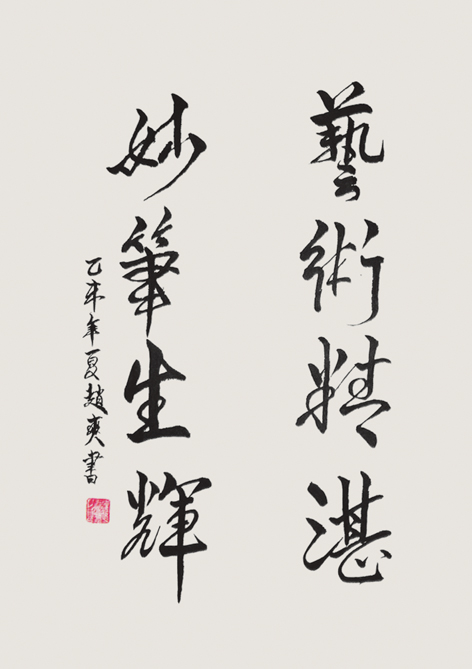 藝術精湛
妙筆生輝
乙未年夏趙爽書